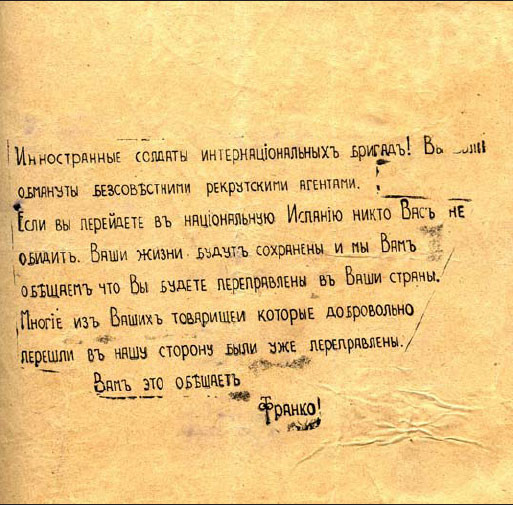 Иностранные солдаты интернаціональныхъ бригадъ! Вы были
обмануты безсовѣстними рекрутскими агентами.
Если вы перейдете въ національную Испанію никто Васъ не
обидить. Ваши жизни будутъ сохранены и мы Вамъ
обѣщаемъ что Вы будете переправлены въ Ваши страны.
Многіе изъ Вашихъ товарищеи которые добровольно
перешли въ нашу сторону были уже переправлены.
Вамъ это обѣщаетъ
Франко!